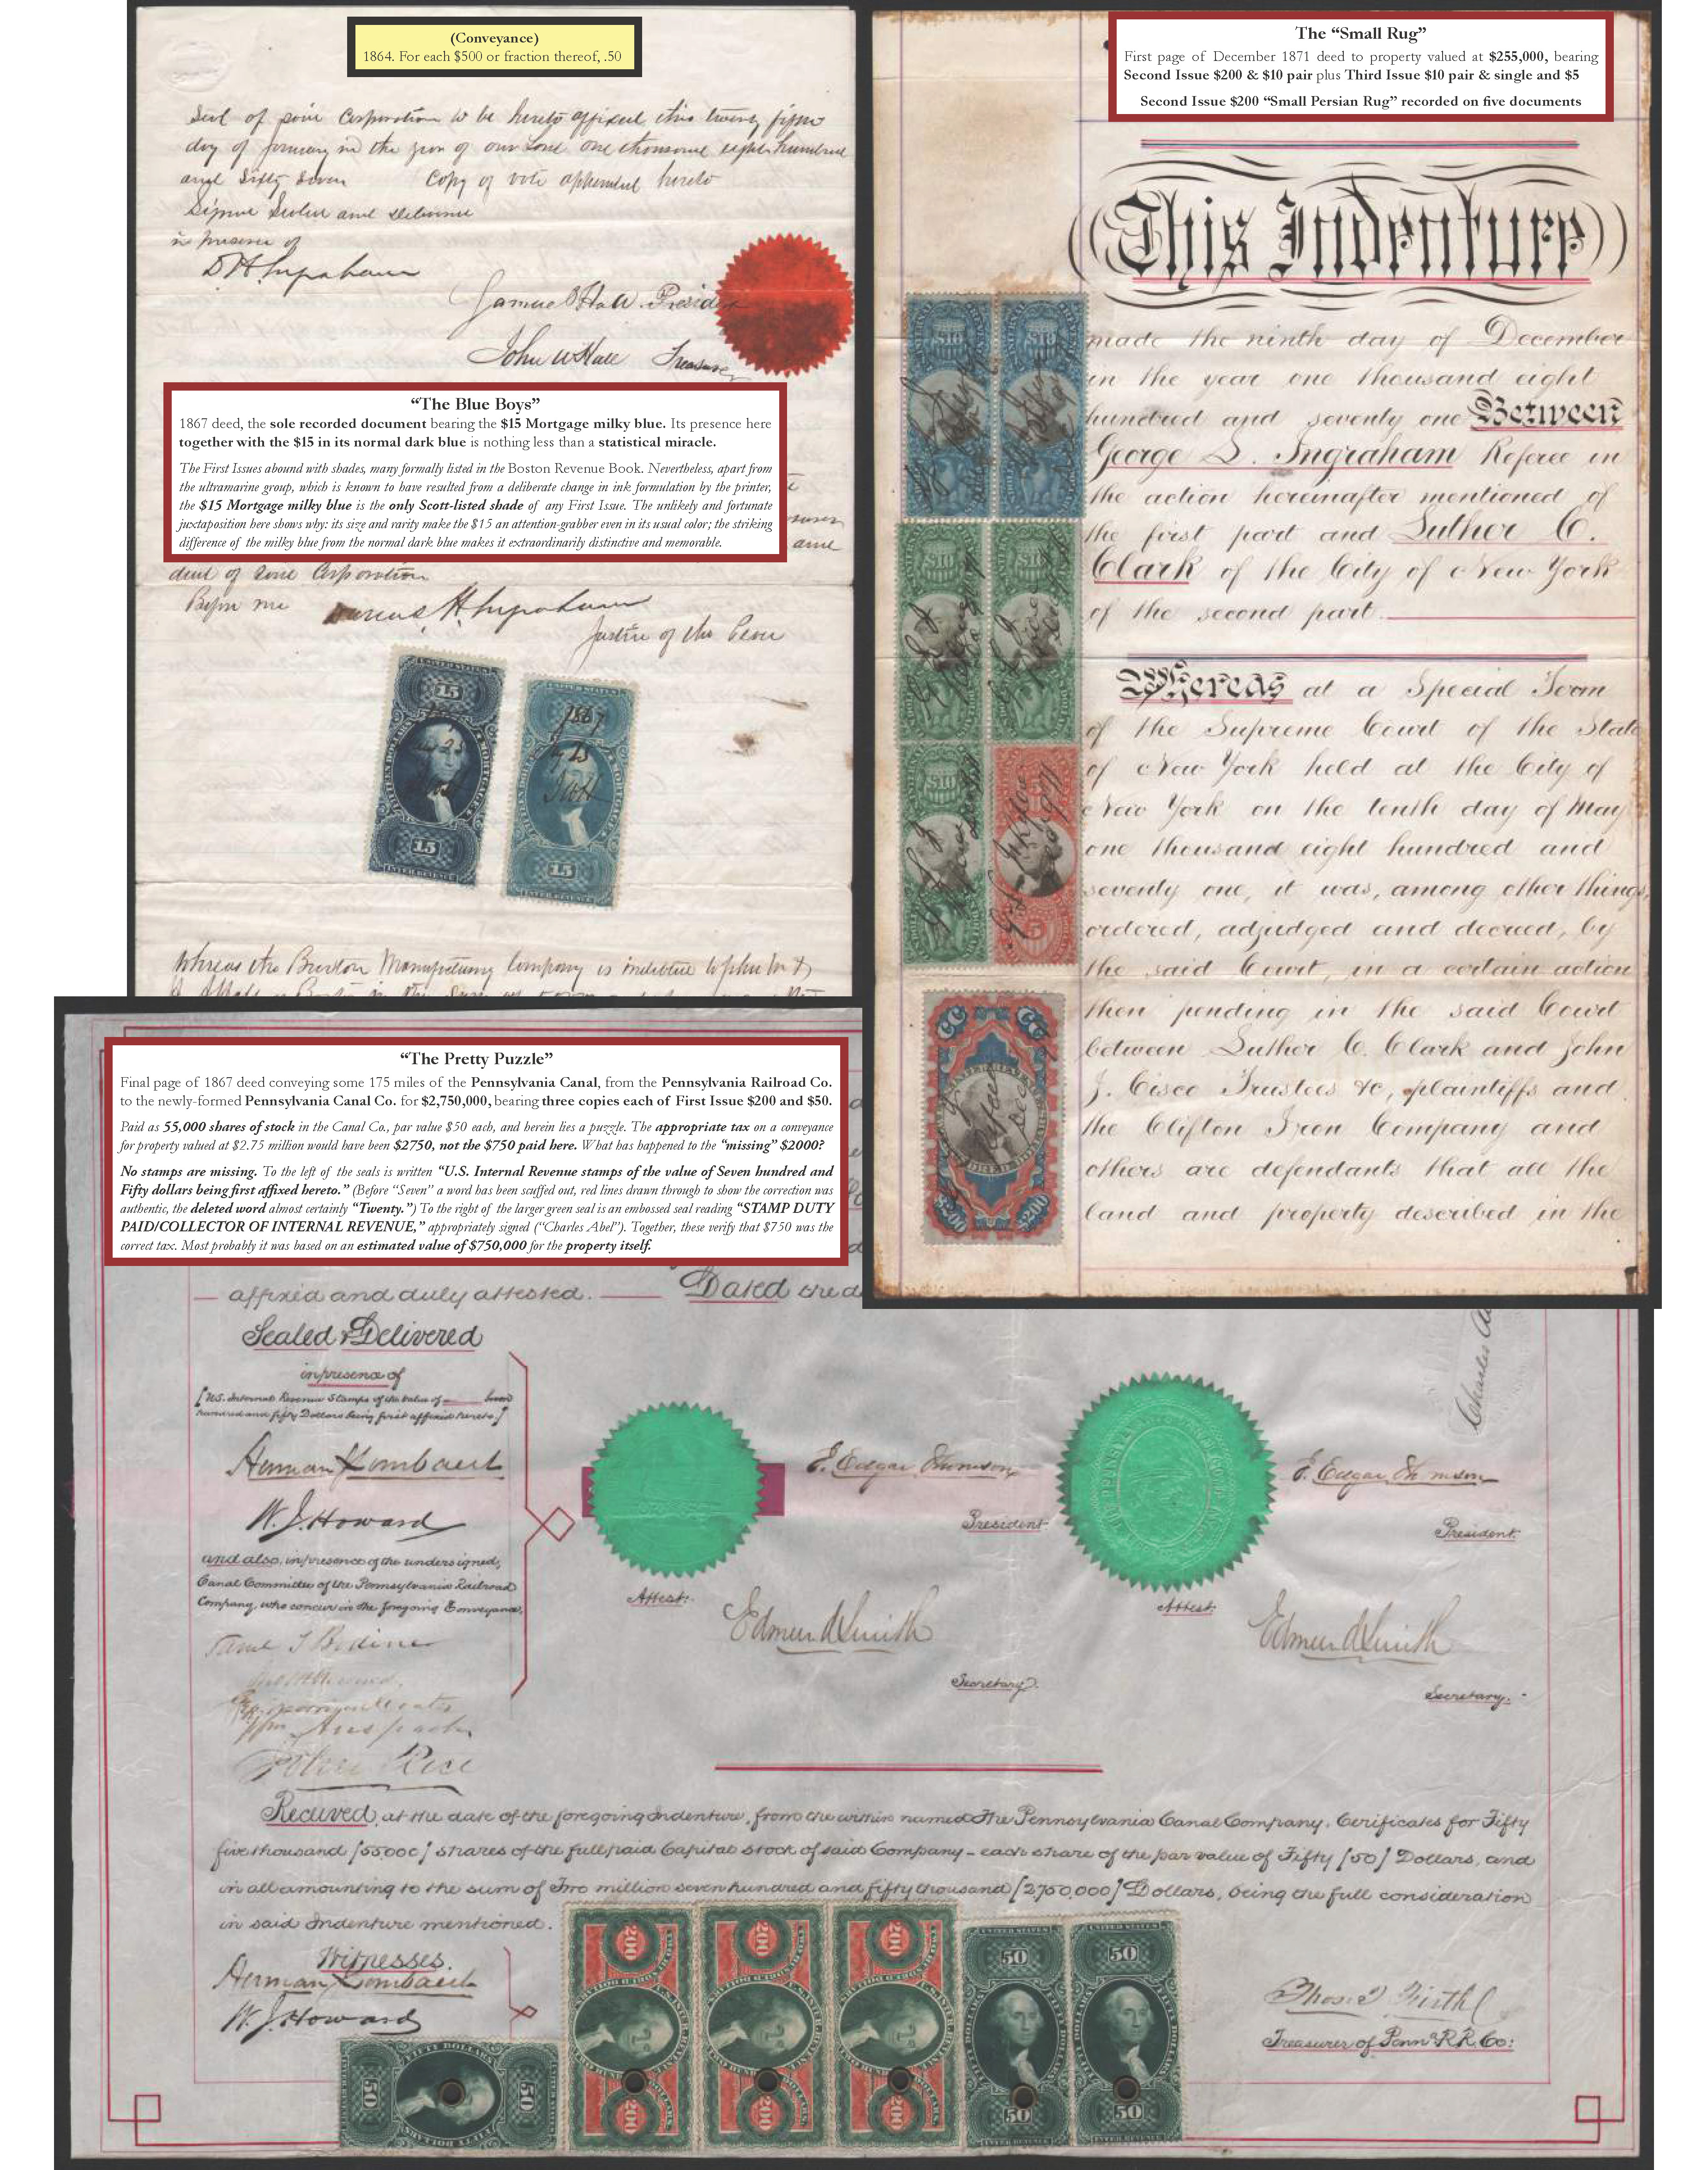 (Conveyance)
1864. For each $500 or fraction thereof, .50
Seal of said Corporation to be hereto affixed this twenty fifth
day of January in the year of our Lord one thousand eight hundred
and Sixty Seven Copy of vote appended hereto
Signed Sealed and delivered
in presence of
Samuel Hall. President
John W Hall Treasurer
“The Blue Boys”
1867 deed, the sole recorded document bearing the $15 Mortgage milky blue. Its presence here
together with the $15 in its normal dark blue is nothing less than a statistical miracle.
The First Issues abound with shades, many formally listed in the Boston Revenue Book. Nevertheless, apart from
the ultramarine group, which is known to have resulted from a deliberate change in ink formulation by the printer,
the $15 Mortgage milky blue is the only Scott-listed shade of any First Issue. The unlikely and fortunate
juxtaposition here shows why: its size and rarity make the $15 an attention-grabber even in its usual color; the striking
difference of the milky blue from the normal dark blue makes it extraordinarily distinctive and memorable.
dent of said Corporation
Before me
Justice of the Peace
15
15
15
1867
Whereas the Manufacturing Company is indebted
The “Small Rug”
First page of December 1871 deed to property valued at $255,000, bearing
Second Issue $200 & $10 pair plus Third Issue $10 pair & single and $5
Second Issue $200 “Small Persian Rug” recorded on five documents
This Indenture
made the ninth day of December
in the year one thousand eight
hundred and seventy one Between
George L. Ingraham Referee in
the action hereinafter mentioned of
the first part and Luther C.
Clark of the City of New York
of the second part.
Whereas at a Special Term
of the Supreme Court of the State
of New York held at the City of
New York on the tenth day of May
one thousand eight hundred and
seventy one, it was, among other things,
ordered, adjudged and decreed, by
the said Court, in a certain action
then pending in the said Court
between Luther C. Clark and John
J. Cisco Trustees &c, plaintiffs and
the Clifton Iron Company and
others are defendants that all the
land and property described in the
$10 $10
$10 $10
$10 5
CC CC
$200 $200
“The Pretty Puzzle”
Final page of 1867 deed conveying some 175 miles of the Pennsylvania Canal, from the Pennsylvania Railroad Co.
to the newly-formed Pennsylvania Canal Co. for $2,750,000, bearing three copies each of First Issue $200 and $50.
Paid as 55,000 shares of stock in the Canal Co., par value $50 each, and herein lies a puzzle. The appropriate tax on a conveyance
for property valued at $2.75 million would have been $2750, not the $750 paid here. What has happened to the “missing” $2000?
No stamps are missing. To the left of the seals is written “U.S. Internal Revenue stamps of the value of Seven hundred and
Fifty dollars being first affixed hereto.” (Before “Seven” a word has been scuffed out, red lines drawn through to show the correction was
authentic, the deleted word almost certainly “Twenty.”) To the right of the larger green seal is an embossed seal reading “STAMP DUTY
PAID/COLLECTOR OF INTERNAL REVENUE,” appropriately signed (“Charles Abel”). Together, these verify that $750 was the
correct tax. Most probably it was based on an estimated value of $750,000 for the property itself.
affixed and duly attested. Dated the d
Sealed & Delivered
in presence of
[U.S. Internal Revenue Stamps of the value of Seven
hundred and fifty Dollars being first affixed hereto]
Herman Lombaert
W. J. Howard
and also, in presence of the undersigned,
Canal Committee of the Pennsylvania Railroad
Company, who concur in the foregoing Conveyance,
John Rice
J. Edgar Thomson
President
Attest:
Edmund Smith
Secretary.
Charles A
J. Edgar Thomson
President.
Attest:
Edmund Smith
Secretary.
Received, at the date of the foregoing Indenture, from the within named The Pennsylvania Canal Company, Certificates for Fifty
five thousand [55000] shares of the full paid Capital Stock of said Company - each share of the par value of Fifty [50] Dollars, and
in all amounting to the sum of Two million seven hundred and fifty thousand [2,750,000] Dollars, being the full consideration
in said Indenture mentioned.
Witnesses.
Herman Lombaert
W. J. Howard
Treasurer of Penna R.R. Co:
FIFTY DOLLARS
50 50
200 200 200
200 200 200
50 50
50 50